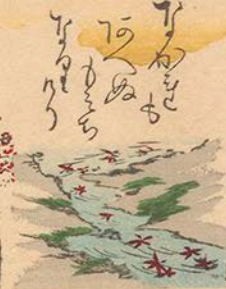 なかれも
あへぬ
もみち
なりけり